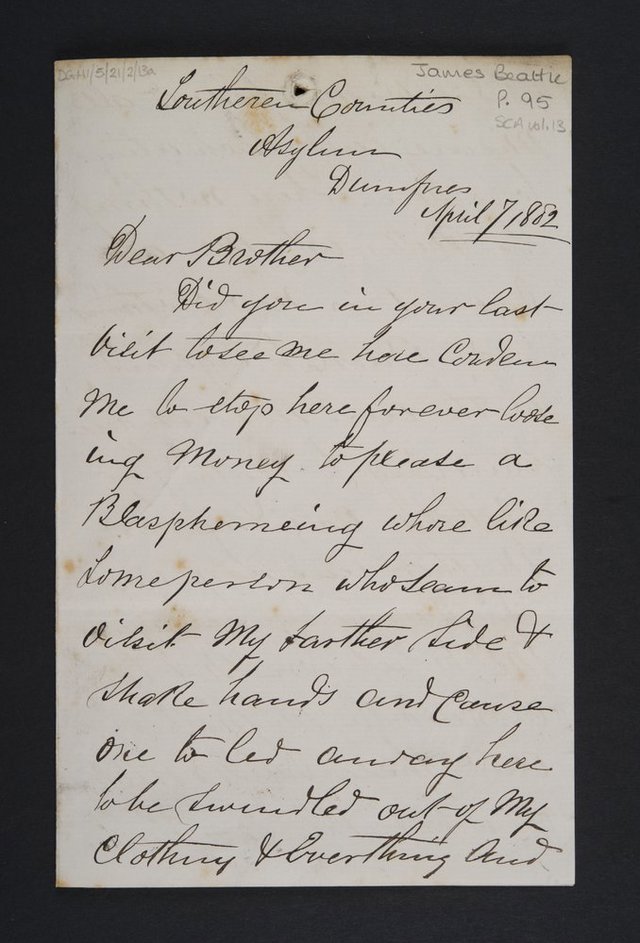 DGH1/5/21/2/13a
James Beattie
P. 95
SCA vol. 13
Southeren Counties
Asylum
Dumfries
April 7, 1882
Dear Brother
Did you in your last
visit to see me here Condem
Me to stop here forever loose
ing Money to please a
Blasphemeing whore like
Some person who seam to
visit My farther Side &
Shake hands and Cause
one to led away here
to be Swindled out of My
Clothing & Everthing And